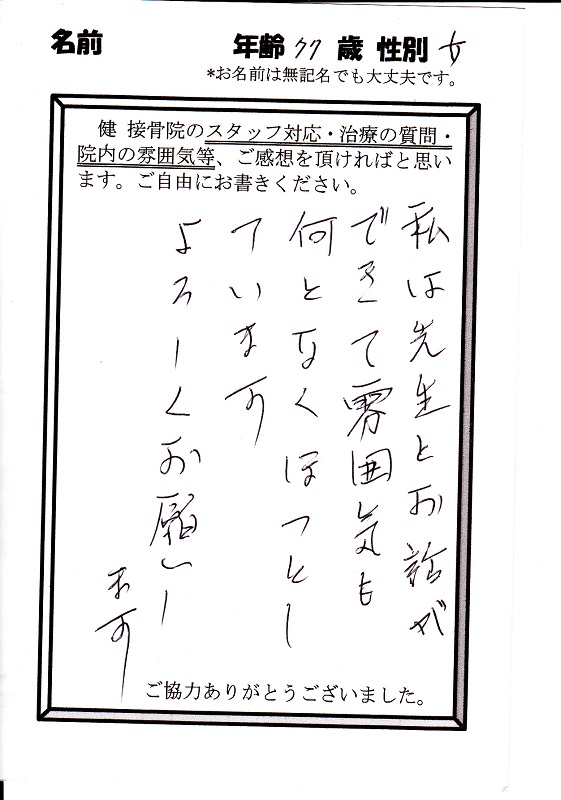 名前 年齢 77 歳 性別 女
*お名前は無記名でも大丈夫です。
健 接骨院のスタッフ対応・治療の質問・
院内の雰囲気等、ご感想を頂ければと思い
ます。ご自由にお書きください。
私は先生とお話が
できて雰囲気も
何となくほっとし
ています
よろしくお願いし
ます
ご協力ありがとうございました。